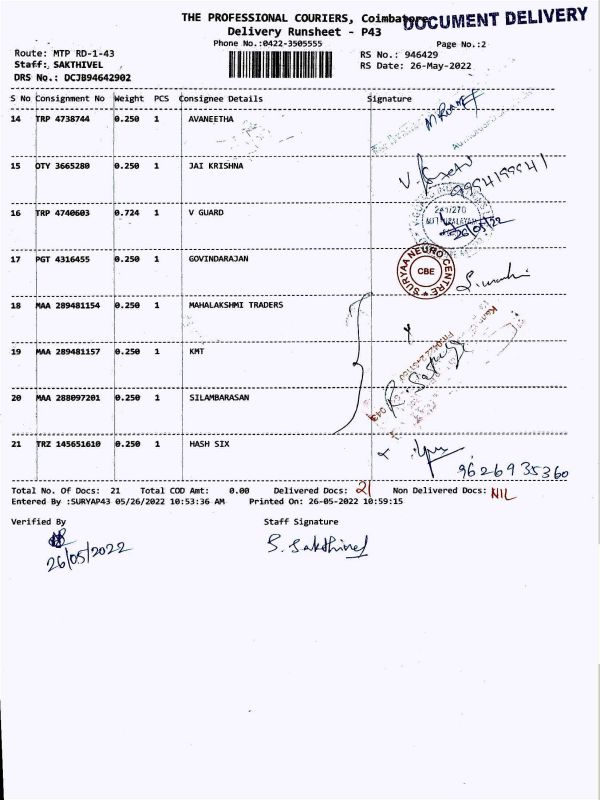 THE PROFESSIONAL COURIERS, Coimbatore
DOCUMENT DELIVERY
Delivery Runsheet - P43
Phone No.:0422-3505555
Page No.:2
Route: MTP RD-1-43
RS No.: 946429
Staff: SAKTHIVEL
RS Date: 26-May-2022
DRS No.: DCJB94642902
S No Consignment No Weight PCS Consignee Details Signature
14 TRP 4738744 0.250 1 AVANEETHA
15 OTY 3665280 0.250 1 JAI KRISHNA
9994199941
16 TRP 4740603 0.724 1 V GUARD
26/05/22
17 PGT 4316455 0.250 1 GOVINDARAJAN
SURYAA NEURO CENTRE
CBE
18 MAA 289481154 0.250 1 MAHALAKSHMI TRADERS
19 MAA 289481157 0.250 1 KMT
20 MAA 288097201 0.250 1 SILAMBARASAN
21 TRZ 145651610 0.250 1 HASH SIX
9626935360
Total No. Of Docs: 21 Total COD Amt: 0.00 Delivered Docs: 21 Non Delivered Docs: NIL
Entered By :SURYAP43 05/26/2022 10:53:36 AM Printed On: 26-05-2022 10:59:15
Verified By Staff Signature
26/05/2022
S. Sakthivel